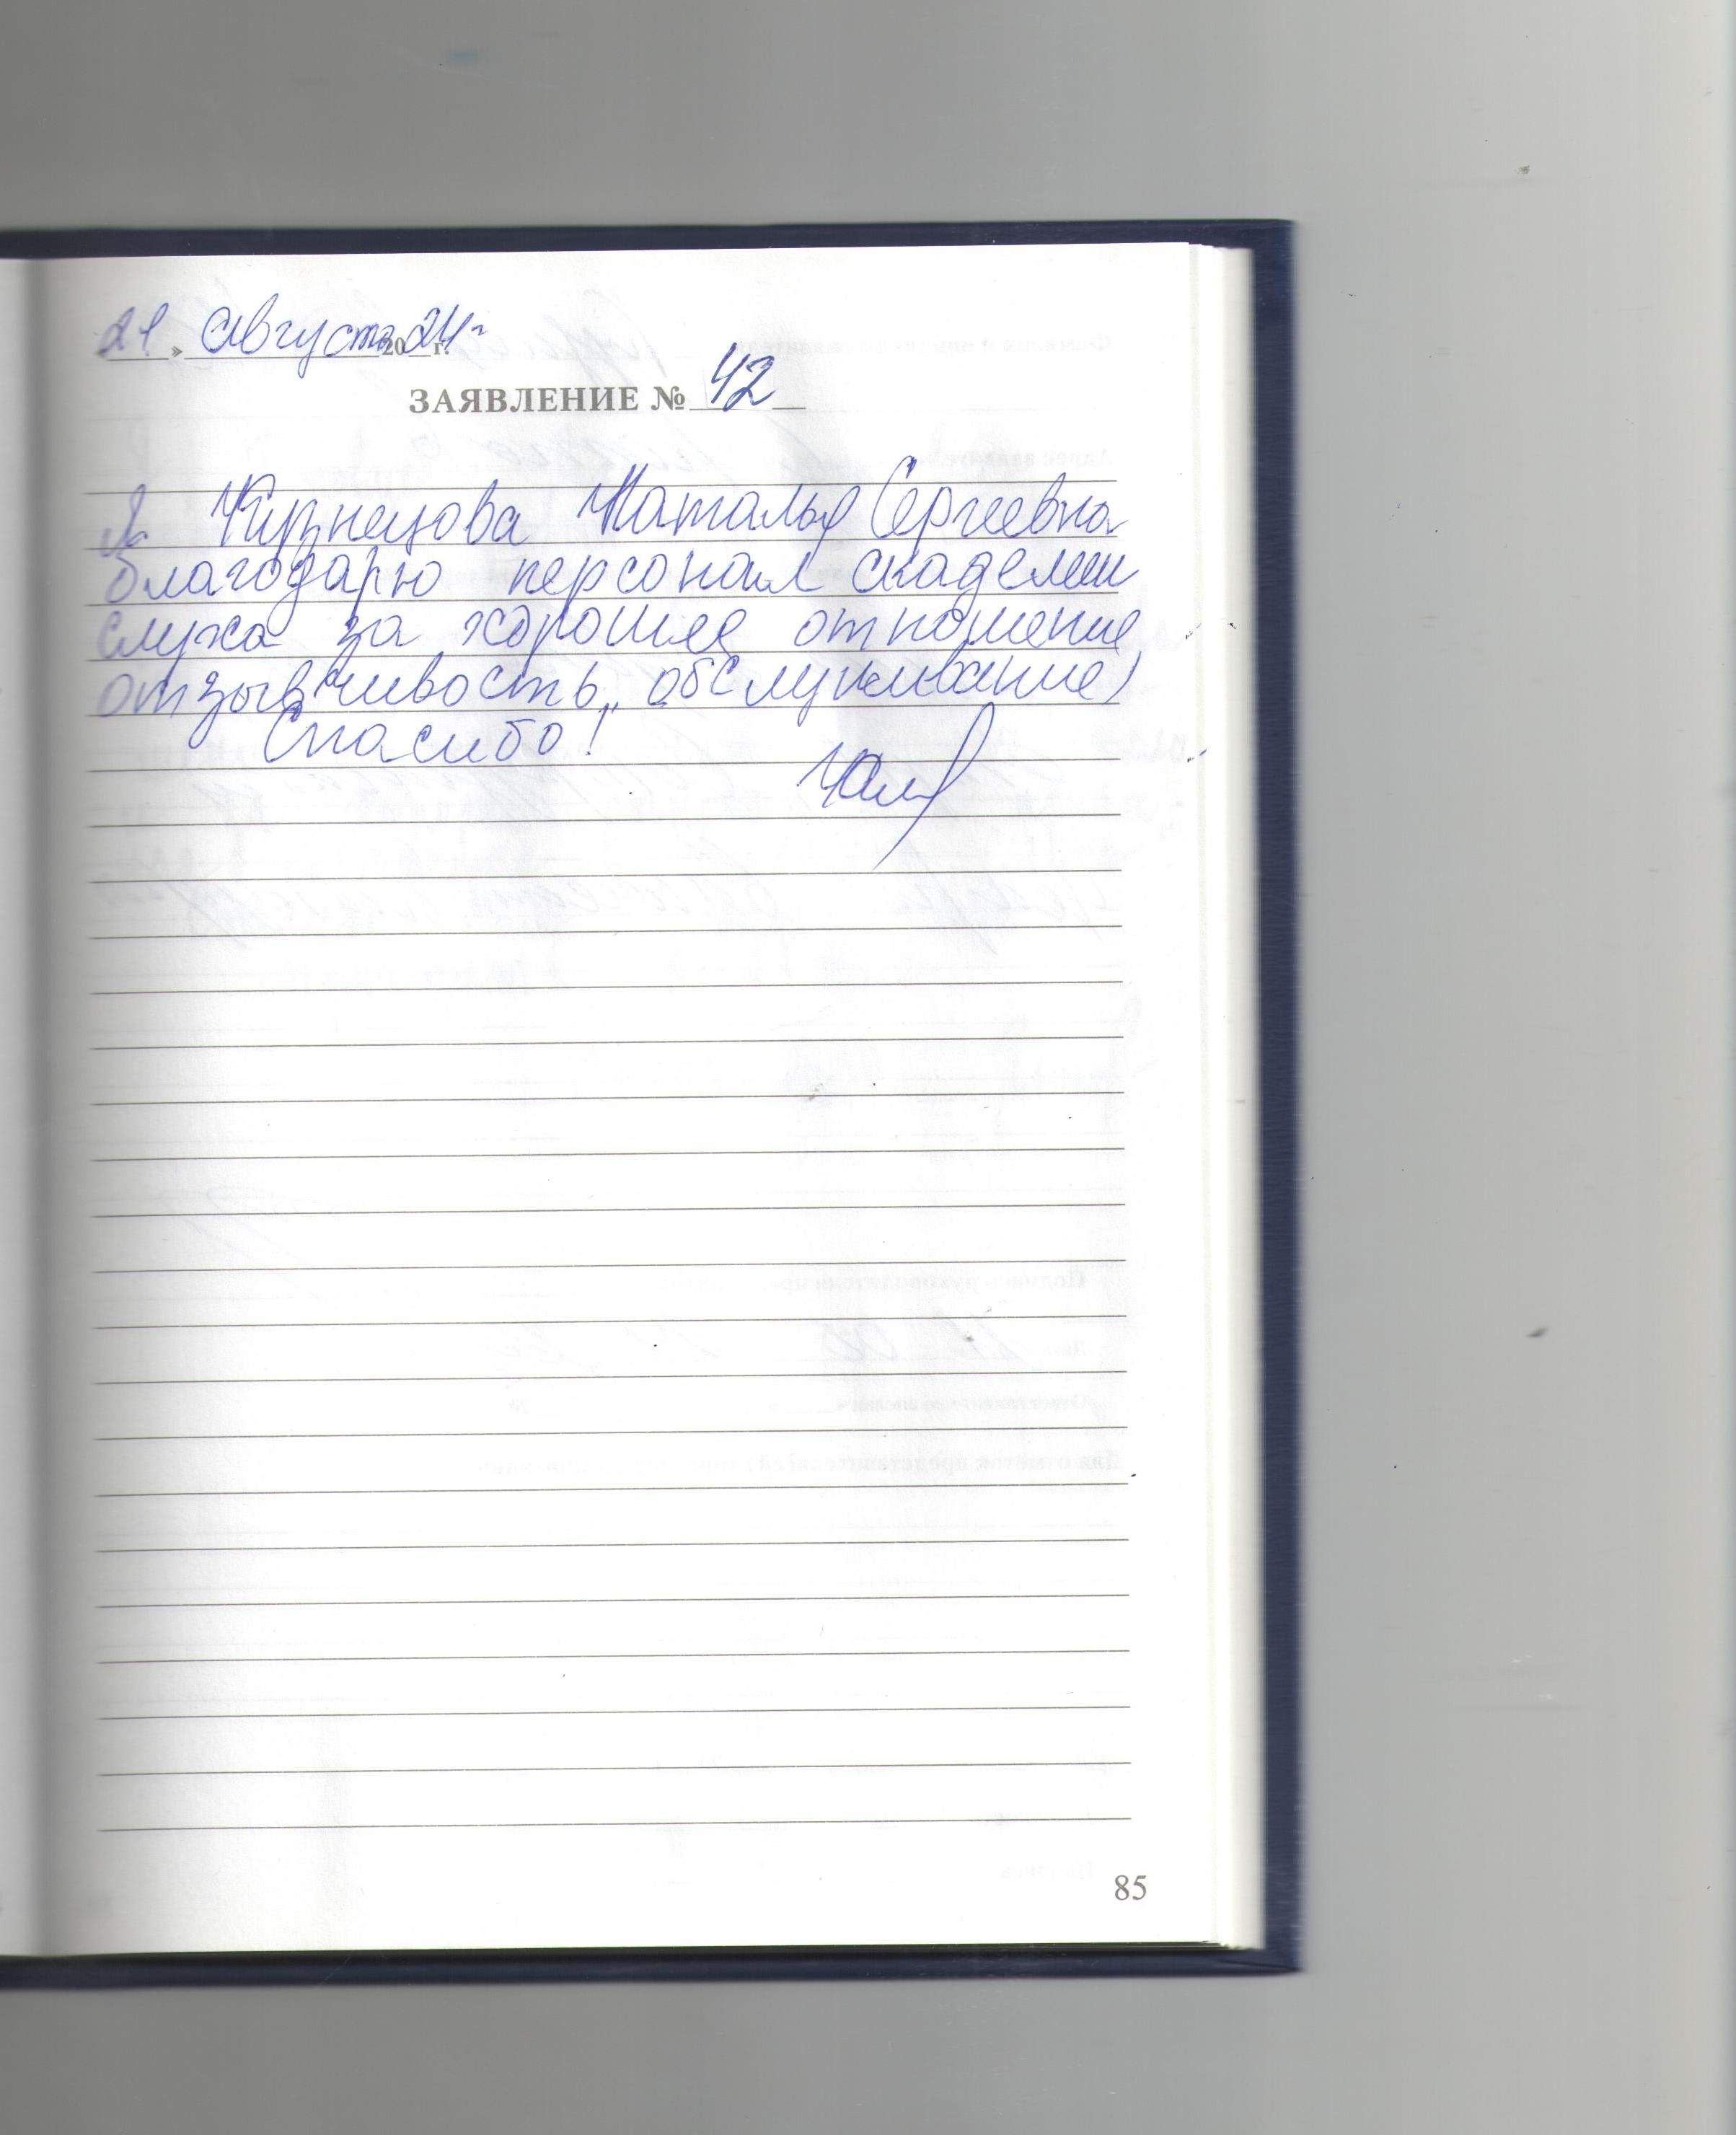 21 » август 2024г.
ЗАЯВЛЕНИЕ № 42
Я Кузнецова Наталья Сергеевна
благодарю персонал академии
слуха за хорошее отношение
отзывчивость, обслуживание,
Спасибо!
85